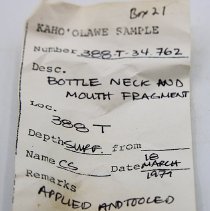 Box 21
KAHO'OLAWE SAMPLE
Number 388-T-34.762
Desc.
BOTTLE NECK AND
MOUTH FRAGMENT
Loc.
388 T
Depth SURF. from
Name CS Date 18 MARCH 1979
Remarks
APPLIED AND TOOLED